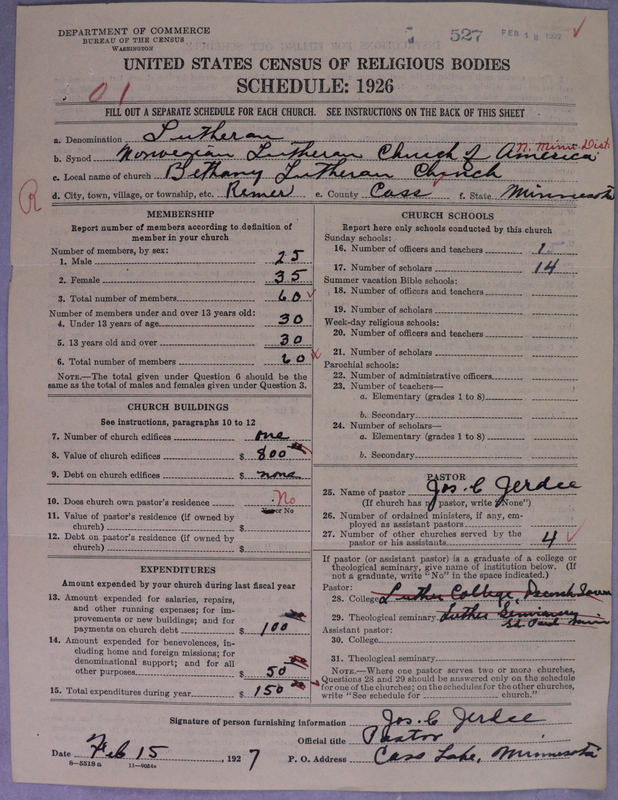 DEPARTMENT OF COMMERCE
BUREAU OF THE CENSUS
WASHINGTON
527
FEB 18 1927
UNITED STATES CENSUS OF RELIGIOUS BODIES
SCHEDULE: 1926
01
FILL OUT A SEPARATE SCHEDULE FOR EACH CHURCH. SEE INSTRUCTIONS ON THE BACK OF THIS SHEET
a. Denomination Lutheran
N. Minn. Dist.
b. Synod Norwegian Lutheran Church of America
c. Local name of church Bethany Lutheran Church
R
d. City, town, village, or township, etc. Remer e. County Cass f. State Minnesota
MEMBERSHIP
Report number of members according to definition of
member in your church
Number of members, by sex:
1. Male 25
2. Female 35
3. Total number of members 60
Number of members under and over 13 years old:
4. Under 13 years of age 30
5. 13 years old and over 30
6. Total number of members 60
NOTE.—The total given under Question 6 should be
same as the total of males and females given under Question 3.
CHURCH BUILDINGS
See instructions, paragraphs 10 to 12
7. Number of church edifices one
8. Value of church edifices $ 800
9. Debt on church edifices $ none
10. Does church own pastor's residence No
or No
11. Value of pastor's residence (if owned by
church) $
12. Debt on pastor's residence (if owned by
church) $
EXPENDITURES
Amount expended by your church during last fiscal year
13. Amount expended for salaries, repairs,
and other running expenses; for im-
provements or new buildings; and for
payments on church debt $ 100
14. Amount expended for benevolences, in-
cluding home and foreign missions; for
denominational support; and for all
other purposes $ 50
15. Total expenditures during year $ 150
CHURCH SCHOOLS
Report here only schools conducted by this church
Sunday schools:
16. Number of officers and teachers 1
17. Number of scholars 14
Summer vacation Bible schools:
18. Number of officers and teachers
19. Number of scholars
Week-day religious schools:
20. Number of officers and teachers
21. Number of scholars
Parochial schools:
22. Number of administrative officers
23. Number of teachers—
a. Elementary (grades 1 to 8)
b. Secondary
24. Number of scholars—
a. Elementary (grades 1 to 8)
b. Secondary
PASTOR
25. Name of pastor Jos. C Jerdee
(If church has no pastor, write "None")
26. Number of ordained ministers, if any, em-
ployed as assistant pastors
27. Number of other churches served by the
pastor or his assistants 4
If pastor (or assistant pastor) is a graduate of a college or
theological seminary, give name of institution below. (If
not a graduate, write "No" in the space indicated.)
Pastor:
28. College Luther College, Decorah Iowa
29. Theological seminary Luther Seminary
St. Paul Minn
Assistant pastor:
30. College
31. Theological seminary
NOTE.—Where one pastor serves two or more churches,
Questions 28 and 29 should be answered only on the schedule
for one of the churches; on the schedules for the other churches,
write "See schedule for church."
Signature of person furnishing information Jos. C Jerdee
Official title Pastor
Date Feb 15, 1927 P. O. Address Cass Lake, Minnesota
8—5518 a 11—9054